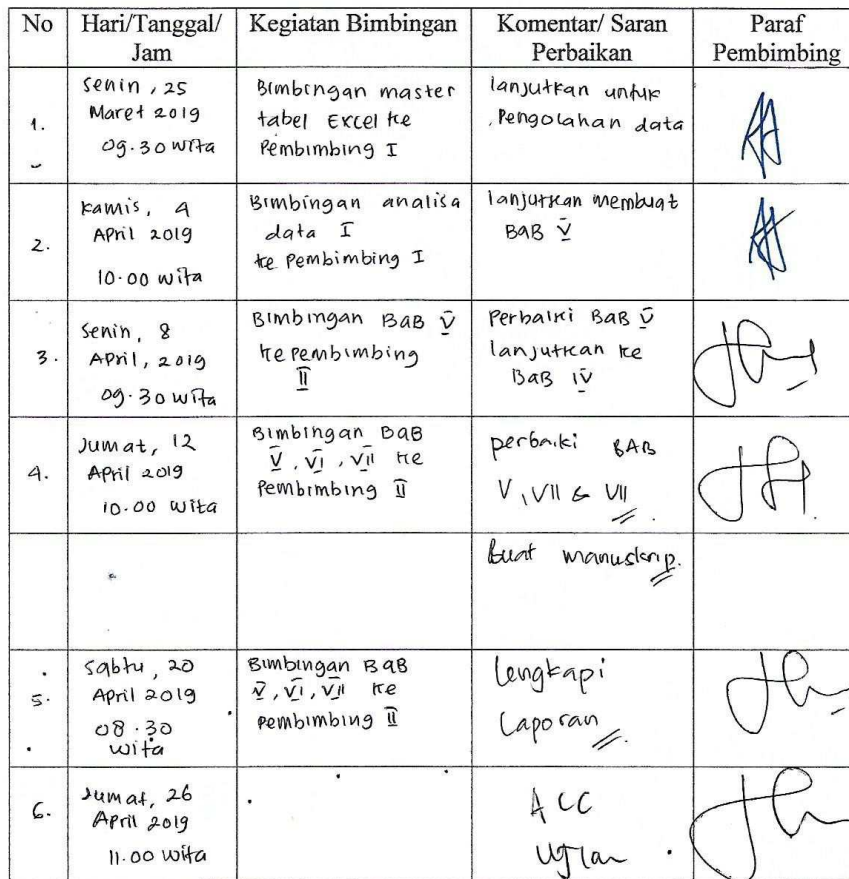 No
Hari/Tanggal/
Jam
Kegiatan Bimbingan
Komentar/ Saran
Perbaikan
Paraf
Pembimbing
1.
Senin, 25
Maret 2019
09.30 wita
Bimbingan master
tabel Excel ke
Pembimbing I
lanjutkan untuk
Pengolahan data
2.
Kamis, 4
April 2019
10.00 wita
Bimbingan analisa
data I
ke Pembimbing I
lanjutkan membuat
BAB V
3.
Senin, 8
April, 2019
09.30 wita
Bimbingan BAB V
ke pembimbing
II
Perbaiki BAB V
lanjutkan ke
BAB IV
4.
Jumat, 12
April 2019
10.00 wita
Bimbingan BAB
V, VI, VII ke
Pembimbing II
perbaiki BAB
V, VII & VII
Buat manuskrip.
5.
Sabtu, 20
April 2019
08.30
wita
Bimbingan BAB
V, VI, VII ke
pembimbing II
Lengkapi
Laporan
6.
Jumat, 26
April 2019
11.00 wita
ACC
Ujian